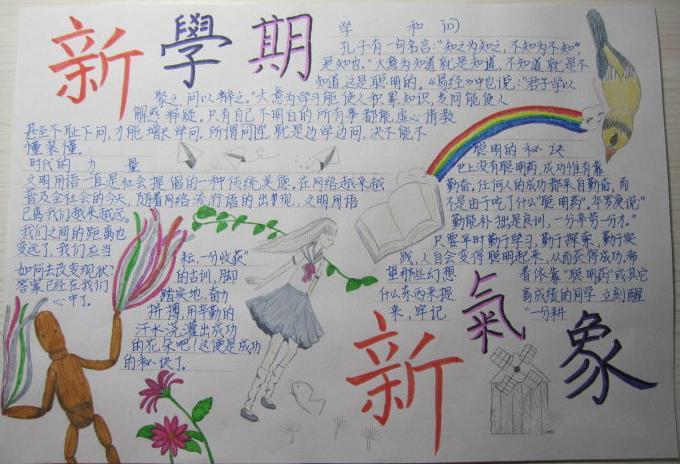 新學期
学和问
孔子有一句名言:"知之为知之,不知为不知"
是知也,"大意为知道就是知道,不知道就是不
知道,这是聪明的。《易经》中也说:"君子学以
聚之,问以辩之。"大意为学习能使人积累知识,发问能使人
解惑释疑。只有自己不明白的所有事都能虚心请教
甚至不耻下问,才能增长学问。所谓问学就是边学边问,决不能不
懂装懂。
时代的力量
文明用语一直是社会提倡的一种传统美德,在网络越来越
普及全社会的今天,随着网络流行语的出现,文明用语
已离我们越来越远,
我们之间的距离也
变远了,我们应当
如何去改变现状?
答案已经在我们
心中了。
聪明的秘诀
世上没有聪明药,成功惟有靠
勤奋,任何人的成功都来自勤奋,而
不是由于吃了什么"聪明药",华罗庚说:"
勤能补拙是良训,一分辛劳一分才。"
只要平时勤于学习,勤于探索,勤于实
践,人自会变得聪明起来,从而获得成功,希
望那些幻想着依靠"聪明药"或其它
什么东西来提高成绩的同学立刻醒
来,牢记"一分耕
耘,一分收获"
的古训,脚
踏实地,奋力
拼搏,用辛勤的
汗水浇灌出成功
的花朵吧!这便是成功
的秘诀了。
新氣象